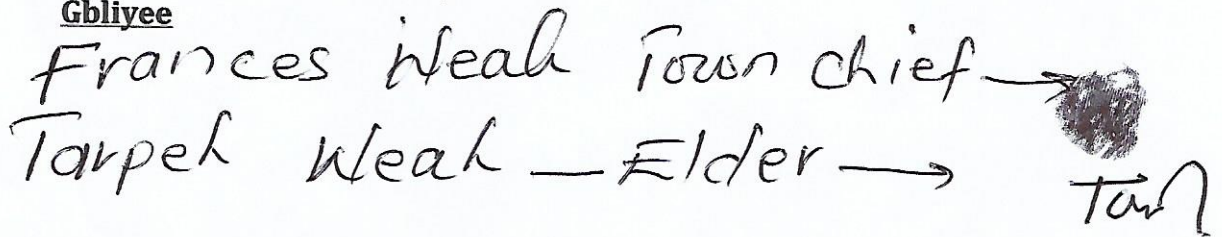 Gbliyee
Frances Weah Town chief
Tarpeh Weah — Elder